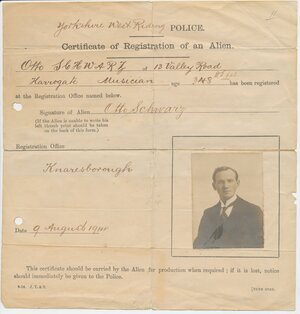 Yorkshire West Riding POLICE.
Certificate of Registration of an Alien.
Otto SCHWARZ of 13 Valley Road
Harrogate Musician age 34 has been registered
at the Registration Office named below.
Signature of Alien Otto Schwarz
(If the Alien is unable to write his
left thumb print should be taken
on the back of this form.)
Registration Office
Knaresborough
Date 9 August 1914
This certificate should be carried by the Alien for production when required; if it is lost, notice
should immediately be given to the Police.